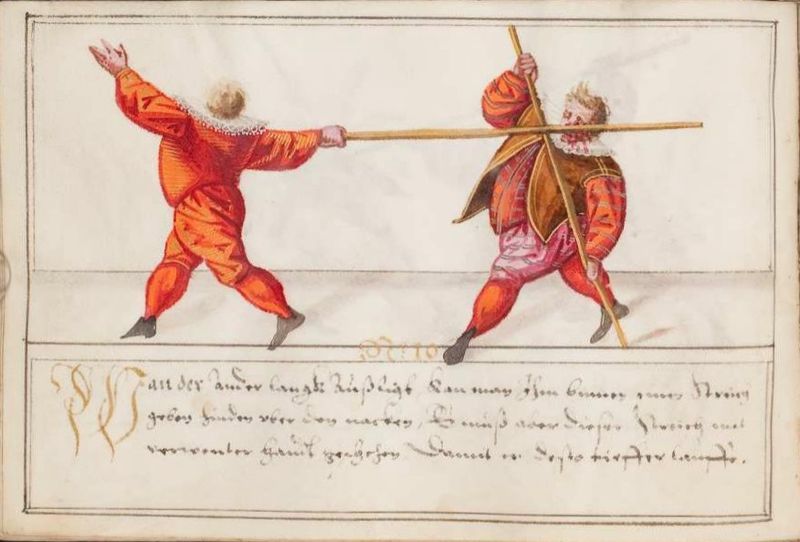 No: 10
Wan der Ander langk Außligt kan man Ihm binnen einen Streich
geben hinden vber den nacken, Es muß aber dieser Streich mit
verwenter handt geschehen Damit er desto tieffer lauffe.